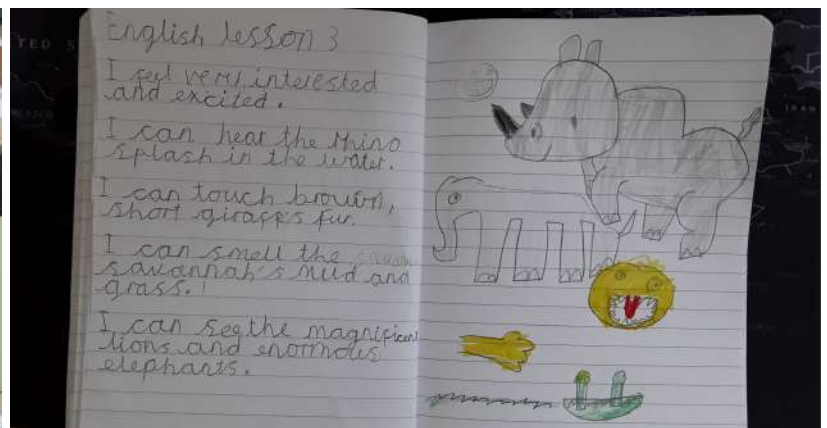 English lesson 3
I feel very interested
and excited.
I can hear the rhino
splash in the water.
I can touch brown,
short giraffe's fur.
I can smell the
savannah's mud and
grass.
I can see the magnificent
lions and enormous
elephants.
TED S